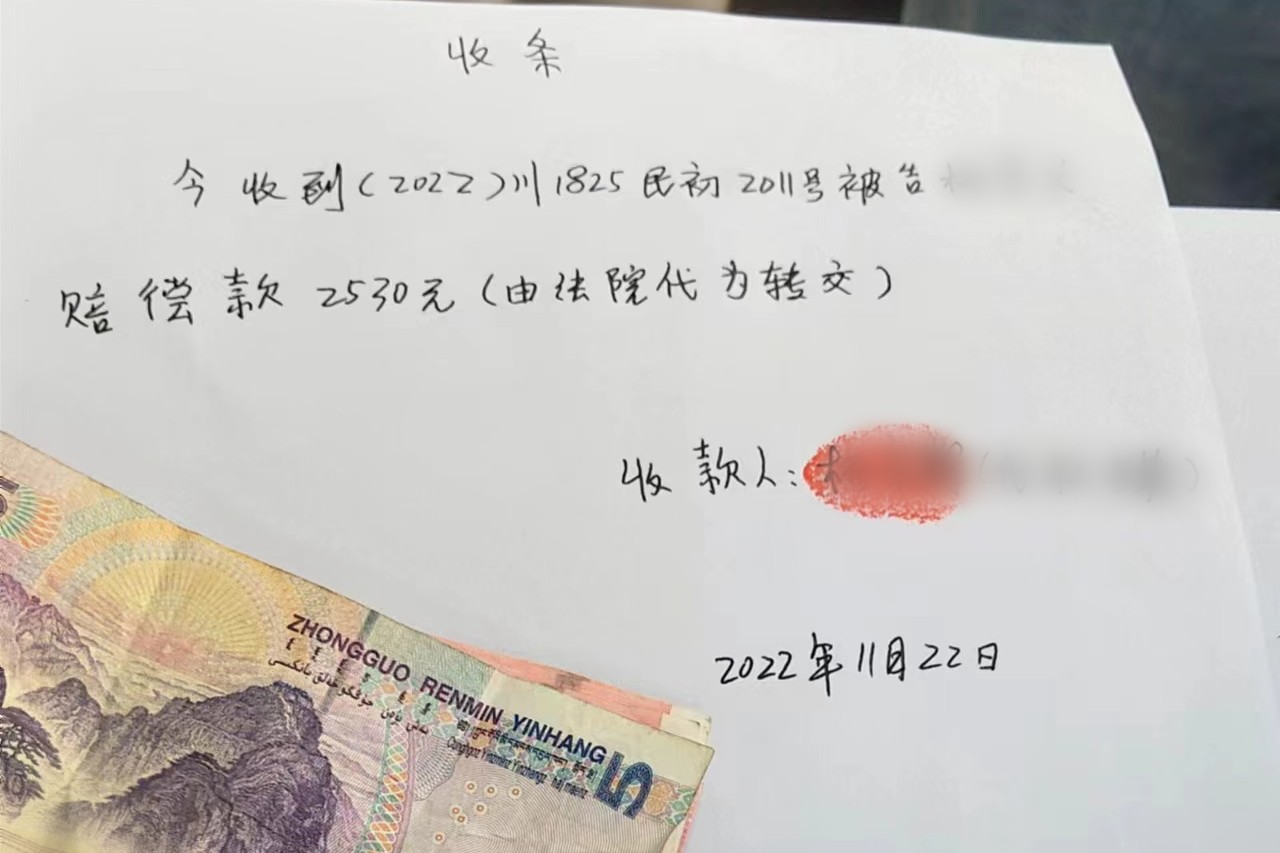 收条
今收到(2022)川1825民初2011号被告
赔偿款2530元(由法院代为转交)
收款人:
2022年11月22日
ZHONGGUO RENMIN YINHANG
5